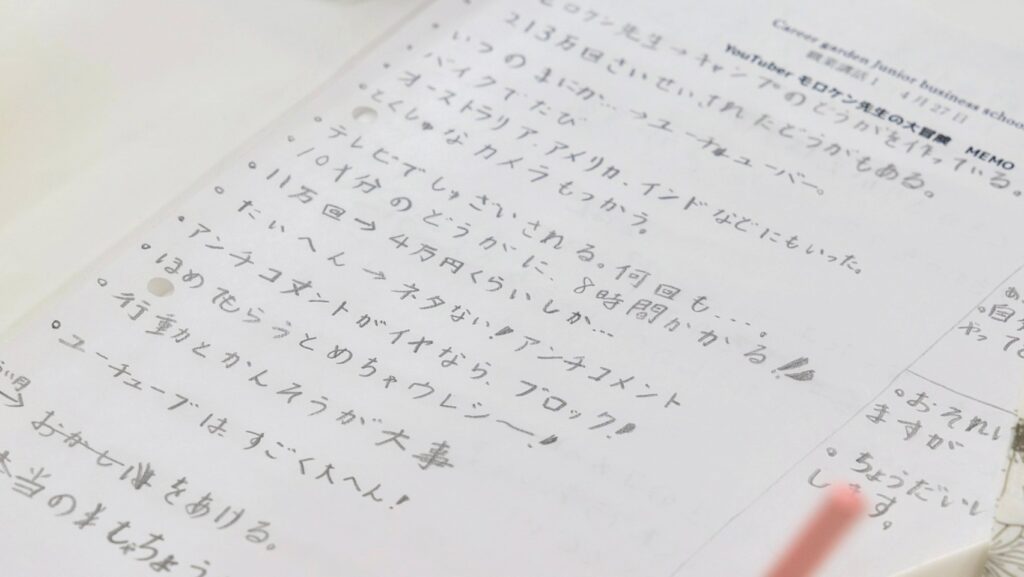 Career garden Junior business school
職業講話1 4月27日
YouTuber モロケン先生の大冒険 MEMO
モロケン先生→キャンプのどうがを作っている。
213万回さいせいされたどうがもある。
・いつのまにか…→ユーチューバー。
・バイクでたび
・オーストラリア、アメリカ、インドなどにもいった。
・とくしゅなカメラもつかう。
・テレビでしゅざいされる。何回も…。
・10分のどうがに、8時間かかる!!
・11万回→4万円くらいしか…
・たいへん→ネタない!アンチコメント
・アンチコメントがイヤなら、ブロック!
・ほめてもらうとめちゃウレシ～!
・行動力とかんそうが大事
・ユーチューブはすごく大へん!
をあける。
本当の
・おそれい
ますが
・ちょうだいい
します。